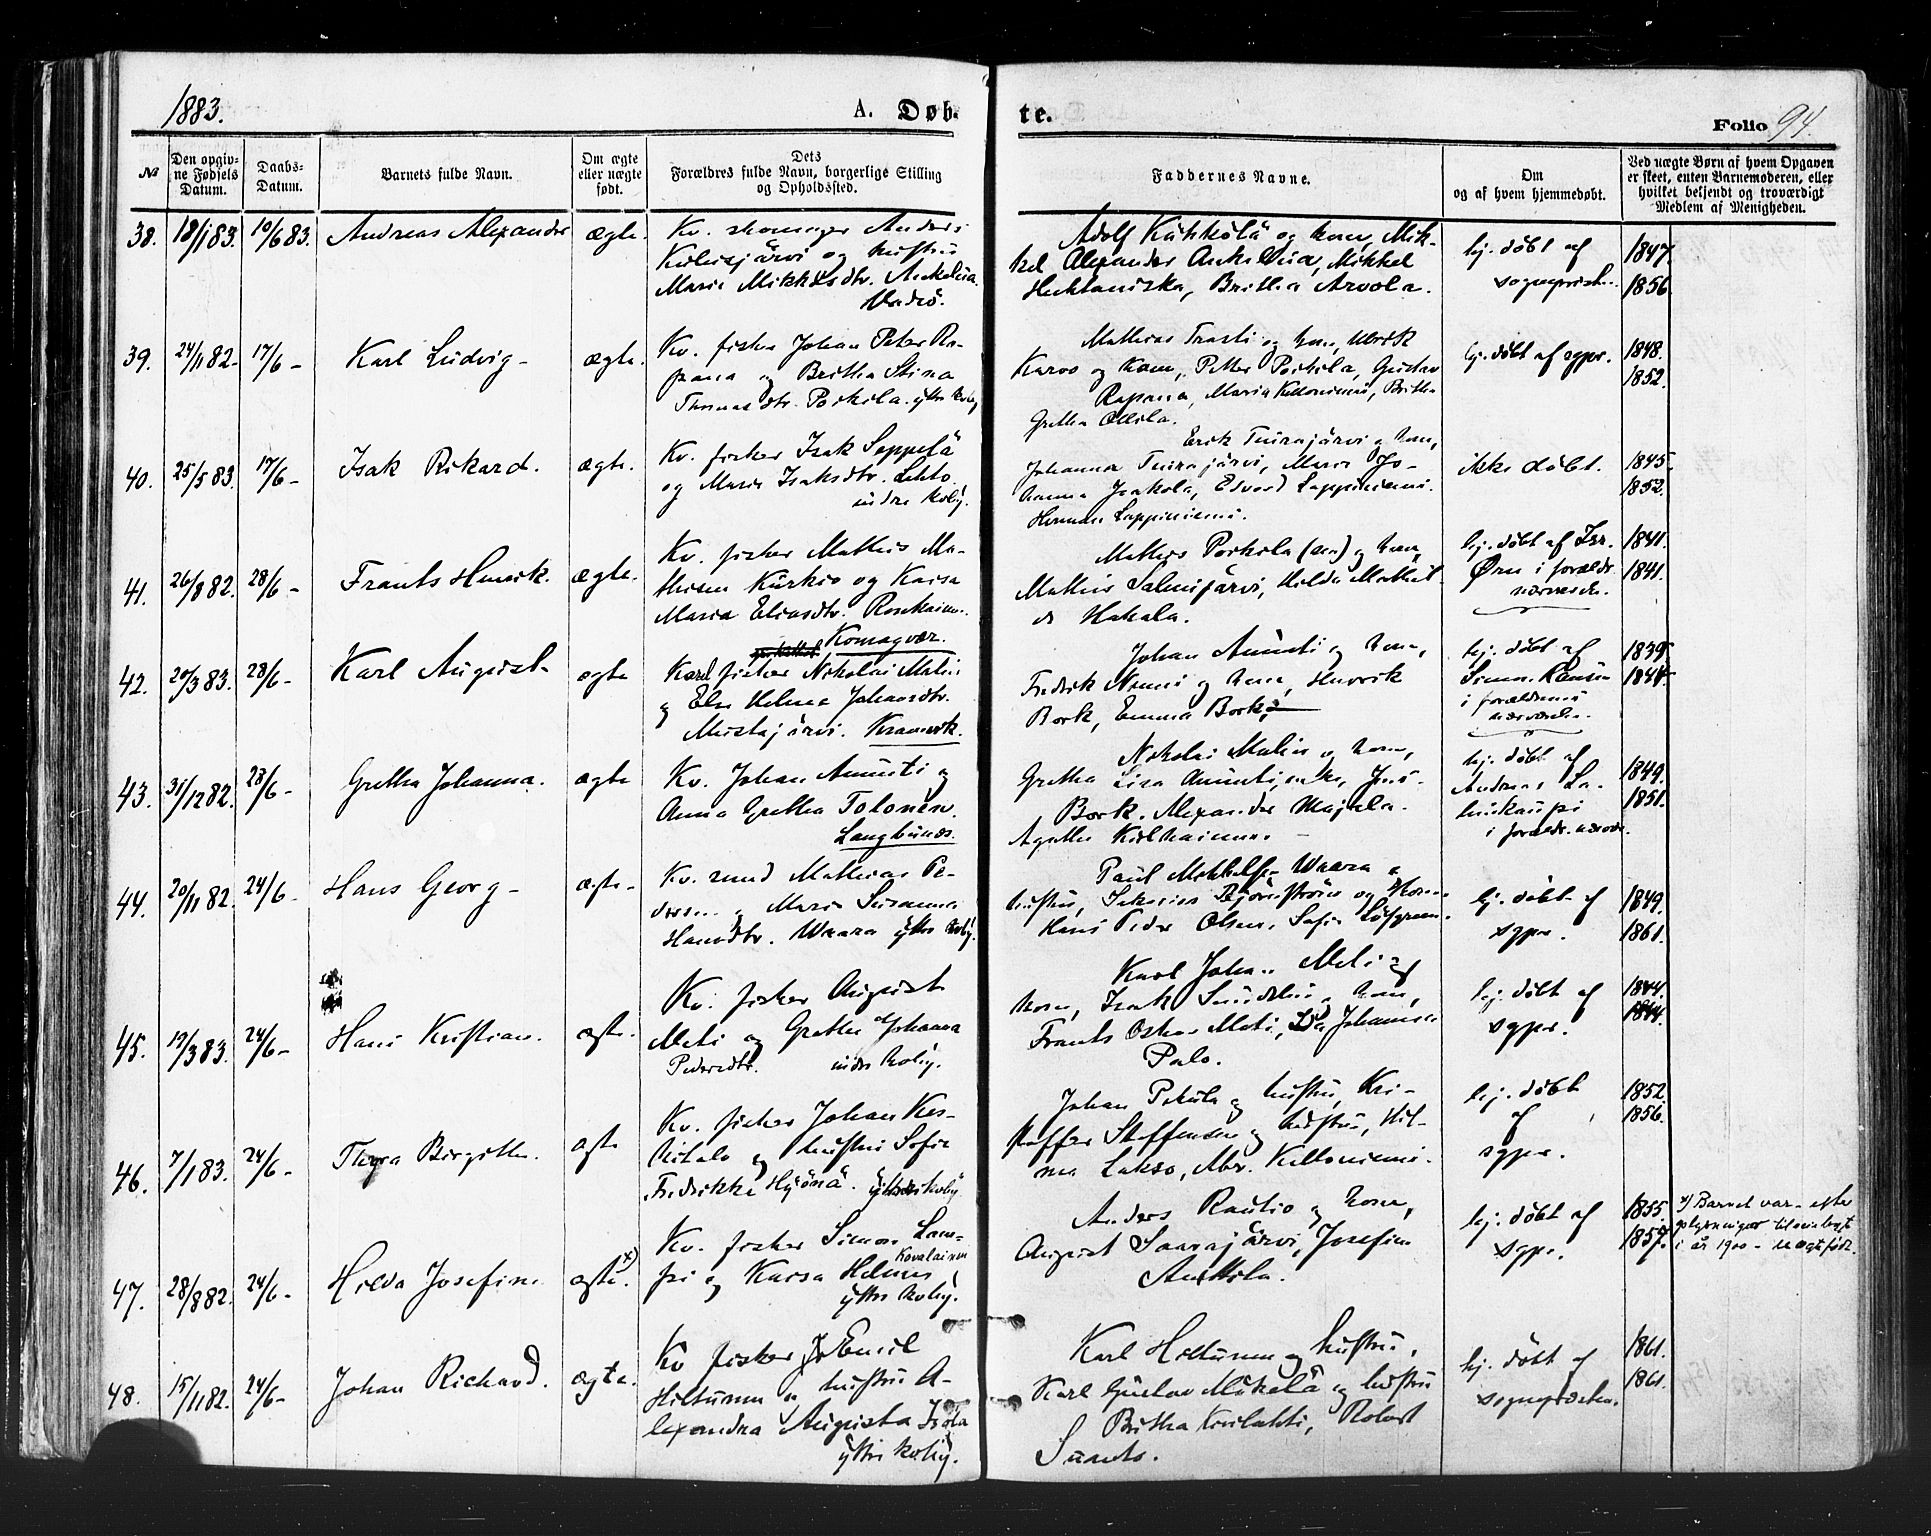 1883.
A. Døb-
te.
Folio 94.
№
Den opgiv-
ne Fødsels
Datum.
Daabs-
Datum.
Barnets fulde Navn.
Om ægte
eller uægte
født.
Dets
Forældres fulde Navn, borgerlige Stilling
og Opholdssted.
Faddernes Navne.
Om
og af hvem hjemmedøbt.
Ved uægte Børn af hvem Opgaven
er skeet, enten Barnemoderen, eller
hvilket bekjendt og troværdigt
Medlem af Menigheden.
38.
18/1 83.
10/6 83.
Andreas Alexander
ægte.
Kv. skomager Anders
og hustru
Maria Mikkelsdtr. Ankelvia
Vadsö.
Adolf Kükkölä og kone, Mik-
kel Alexander Mikkel
Britha Arvola.
hj. döbt af
sogneprest.
1847.
1856.
39.
24/11 82-
17/6 -
Karl Ludvig -
ægte.
Kv. fisker Johan Peter Ra-
pana og Britha Stina
Thomasdtr. Porkila. yttre kvby
Mathias og kone,
Karvo og kone, Petter Porkila, Gustav
Rapana, Maria Kelloniemi, Britha
Gretha Ollila.
hj. döbt af sgpr.
1848.
1852.
40.
25/5 83.
17/6 -
Isak Rikard.
ægte.
Kv. fisker Isak Seppelä
og Maria Isaksdtr. Lehto
indre kvby.
Erik Tuirajärvi og kone,
Johanna Tuirajärvi, Maria Jo-
hanna Isakola, Edvard Lappiniemi.
Herman Lappiniemi.
ikke döbt.
1845.
1852.
41.
26/8 82.
28/6 -
Frants Henrik.
ægte.
Kv. fisker Mathis Ma-
thisen Kürkio og Kaisa
Maria Eliasdtr.
Komagvær.
Mathis Porkila (sen) og kone,
Mathis Salmijärvi, Hilda Mathil-
de Hakala.
hj. döbt af Isr.
Ørn i forældr.
nærværelse.
1841.
1841.
42.
20/3 83.
28/6 -
Karl August -
ægte
fisker Nikolai Malin
og Else Helena Johansdtr.
Mustajärvi. Kramvik.
Johan Anunti og kone,
Fredrik Niemi og kone, Henrik
Bork, Emma Bork,
hj. döbt af
i forældrenes
nærværelse.
1839.
1844.
43.
31/12 82.
28/6 -
Gretha Johanna.
ægte
Kv. Johan Anunti og
Anna Gretha Tolonen.
Langbunes.
Nikolai Malin og kone,
Gretha Lisa Jens
Bork. Alexander Majala.
Agatha
hj. döbt af
Andreas La-
hinkaupi
i forældr. nærvær.
1849.
1851.
44.
20/11 82.
24/6 -
Hans Georg -
ægte -
Kv. Mathias Pe-
dersen og Maria Susanna
Hansdtr. Waara yttre kvby.
Paul Mikkelsen Waara og
hustru, Björnström og kone
Hans Peder Olsen, Sofie Löfgreen.
hj. döbt af
sgpr.
1849.
1861.
45.
19/3 83.
24/6 -
Hans Kristian.
ægte.
Kv. fisker August
Meti og Gretha Johanna
Pedersdtr. indre kvby.
Karl Johan Meti og
kone, Isak og kone,
Frants Oskar Meti, Johansen
Palo.
hj. döbt af
sgpr.
1844.
1844.
46.
7/1 83.
24/6 -
Thyra Birgitte.
ægte
Kv. fisker Johan Kes-
kitalo og hustru Sofie
Fredrikke Hyönä. yttre kvby.
Johan Pekula og hustru, Kri-
stoffer Steffensen og hustru, Hil-
ma Lakso, Abr. Kelloniemi.
hj. döbt
af
sgpr.
1852.
1856.
47.
28/8 82.
24/6 -
Hilda Josefine.
ægte. x)
Kv. fisker Simon Lam-
pi og Kaisa Helena Kovalainen
yttre kvby.
Anders Rautio og kone,
August Saarajärvi, Josefine
Anttila.
hj. döbt af
sgpr.
1855.
1857.
x) Barnet var efter
oplysninger tilveiebragt
i år 1900 - uægte född.
48.
15/11 82.
24/6 -
Johan Richard.
ægte.
Kv fisker J. Emil
Hiltunen og hustru A-
lexandra Augusta Isola
yttre kvby.
Karl Hiltunen og hustru,
Karl Gustav Mäkelä og hustru
Britha Kivilahti, Robert
Suanto.
hj. döbt af
sognepresten.
1861.
1861.